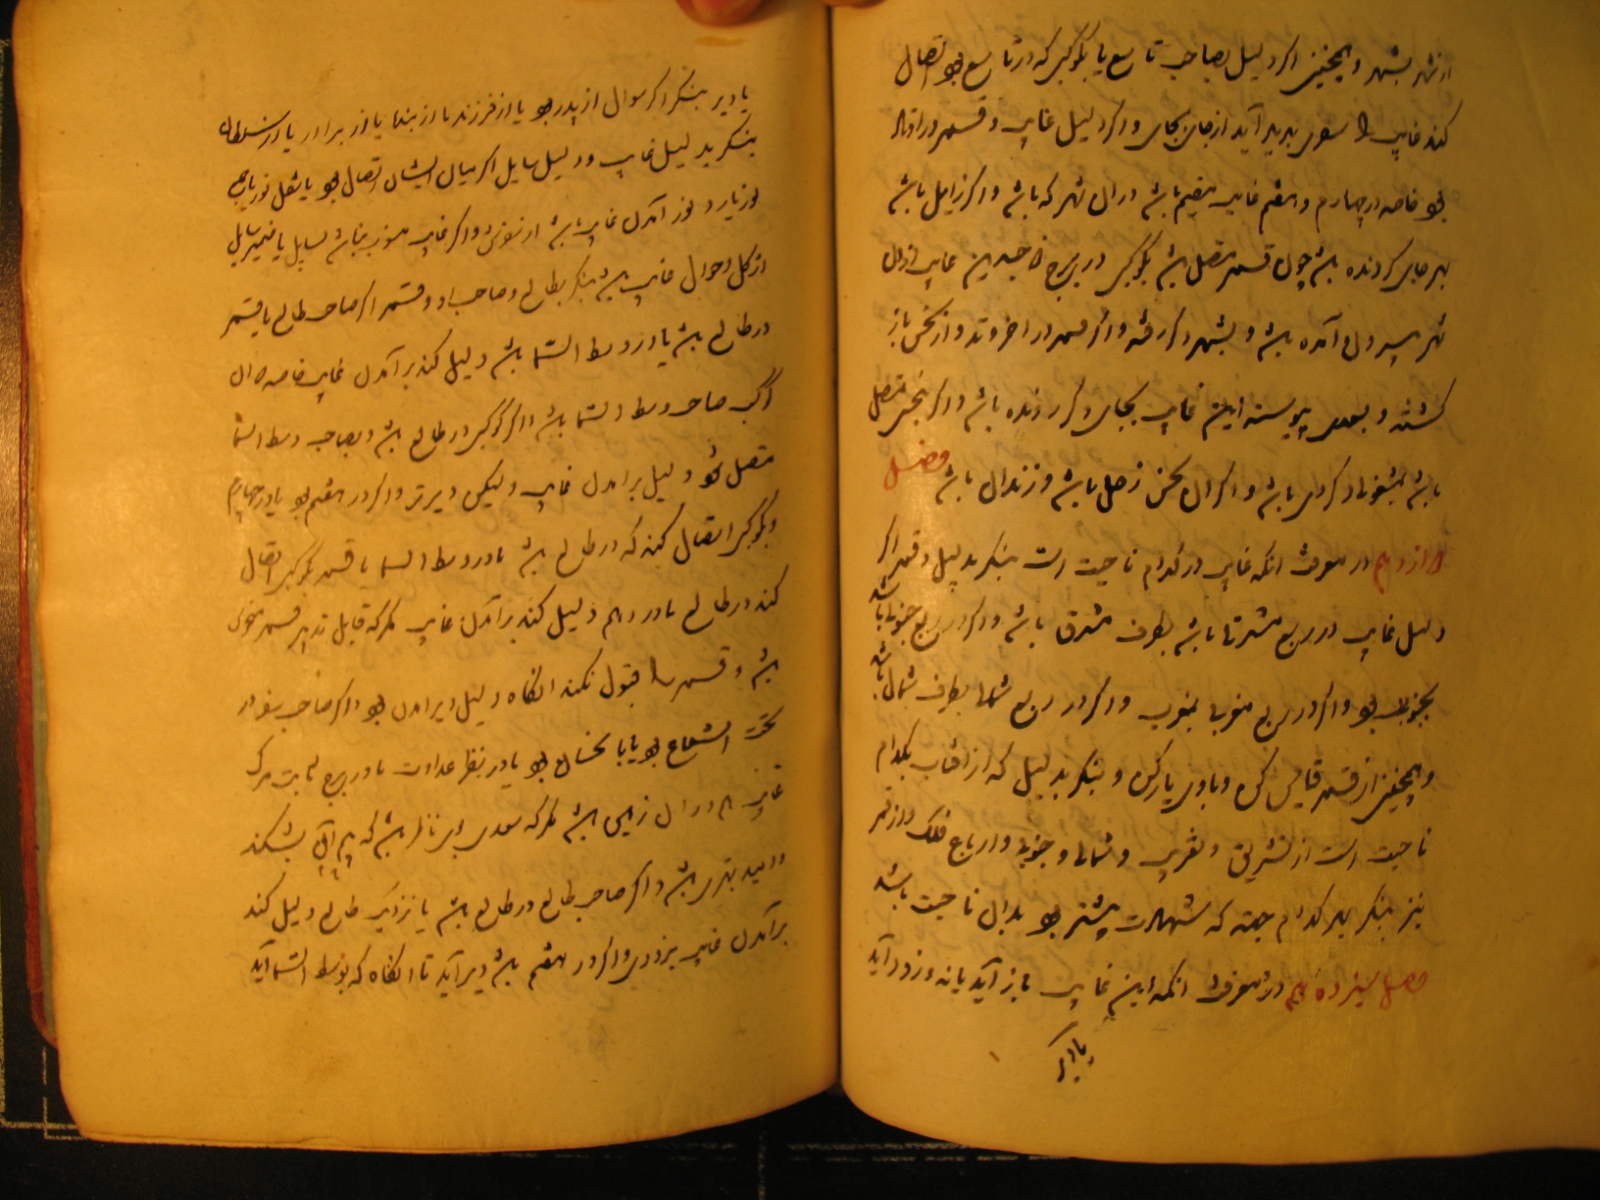 از شهر بشهر و همچنین اگر دلیل بصاحب تاسع یا بکوکبی که در تاسع بود اتصال
کند غایب را سفری پدید آید از جای بجای و اگر دلیل غایب و قمر در اوتاد
بود خاصه در چهارم و هفتم غایب مقیم باشد در ان شهر که باشد و اگر زایل باشد
بهر جای گردنده باشد چون قمر متصل باشد بکوکبی در برج ذا جسدین غایب از ان
شهر بیرون آمده باشد و بشهر دیگر رفته و اگر قمر در اخر وتد و از نحس باز
گشته و بسعد پیوسته این غایب بجای دیگر رونده باشد و اگر بنحس متصل
باشد مشغول دیگری باشد و اگر ان نحس زحل باشد در زندان باشد فصل
دوازدهم در معرفت انکه غایب در کدام ناحیت است بنکر بدلیل و قمر اگر
دلیل غایب در ربع مشرقی باشد بطرف مشرق باشد و اگر در ربع جنوبی باشد
بجنوب بود و اگر در ربع مغربی بمغرب و اگر در ربع شمالی بطرف شمال باشد
و همچنین از قمر قیاس کن و با وی یار کن و بنکر بدلیل که از افتاب بکدام
ناحیت است از تشریق و تغریب و شمالی و جنوبی و ارباع فلک و از قمر
نیز بنکر بهر کدام جهته که شهادت بیشتر بود بدان ناحیت باشد
فصل سیزدهم در معرفت انکه این غایب باز آید یا نه و زود آید
یا دیر
یا دیر بنکر اگر سوال از پدر بود یا از فرزند یا از بنده یا از برادر یا از سلطان
بنکر بدلیل غایب و دلیل سایل اگر میان ایشان اتصال بود یا نقل نور یا جمع
نور یا رد نور آمدن غایب باشد از سفر و اگر غایب منسوب نباشد بسایل یا ضمیر سایل
از کل احوال غایب باشد بنکر بطالع و صاحب او و قمر اگر صاحب طالع یا قمر
در طالع باشد یا در وسط السما باشد دلیل کند بر آمدن غایب خاصه که ان
کوکب صاحب وسط السما باشد و اگر کوکبی در طالع باشد و بصاحب وسط السما
متصل شود دلیل بر امدن غایب و لیکن دیرتر و اگر در هفتم بود یا در چهارم
و بکوکبی اتصال کند که در طالع باشد یا در وسط السما یا قمر بکوکبی اتصال
کند در طالع یا در دهم دلیل کند بر آمدن غایب مکر که قابل تدبیر قمر منحوس
باشد و قمر را قبول نکند انگاه دلیل دیر امدن بود و اگر صاحب سفر در
تحت الشعاع بود یا با نحسان بود یا در نظر عداوت یا در برج ثابت مرگ
غایب هم در ان زمین باشد مکر که سعدی بوی ناظر باشد که بیم ان بشکند
و امید بهتری باشد و اگر صاحب طالع در طالع باشد یا نزدیک طالع دلیل کند
بر آمدن غایب بزودی و اگر در هفتم باشد دیر آید تا انگاه که بوسط السما آید